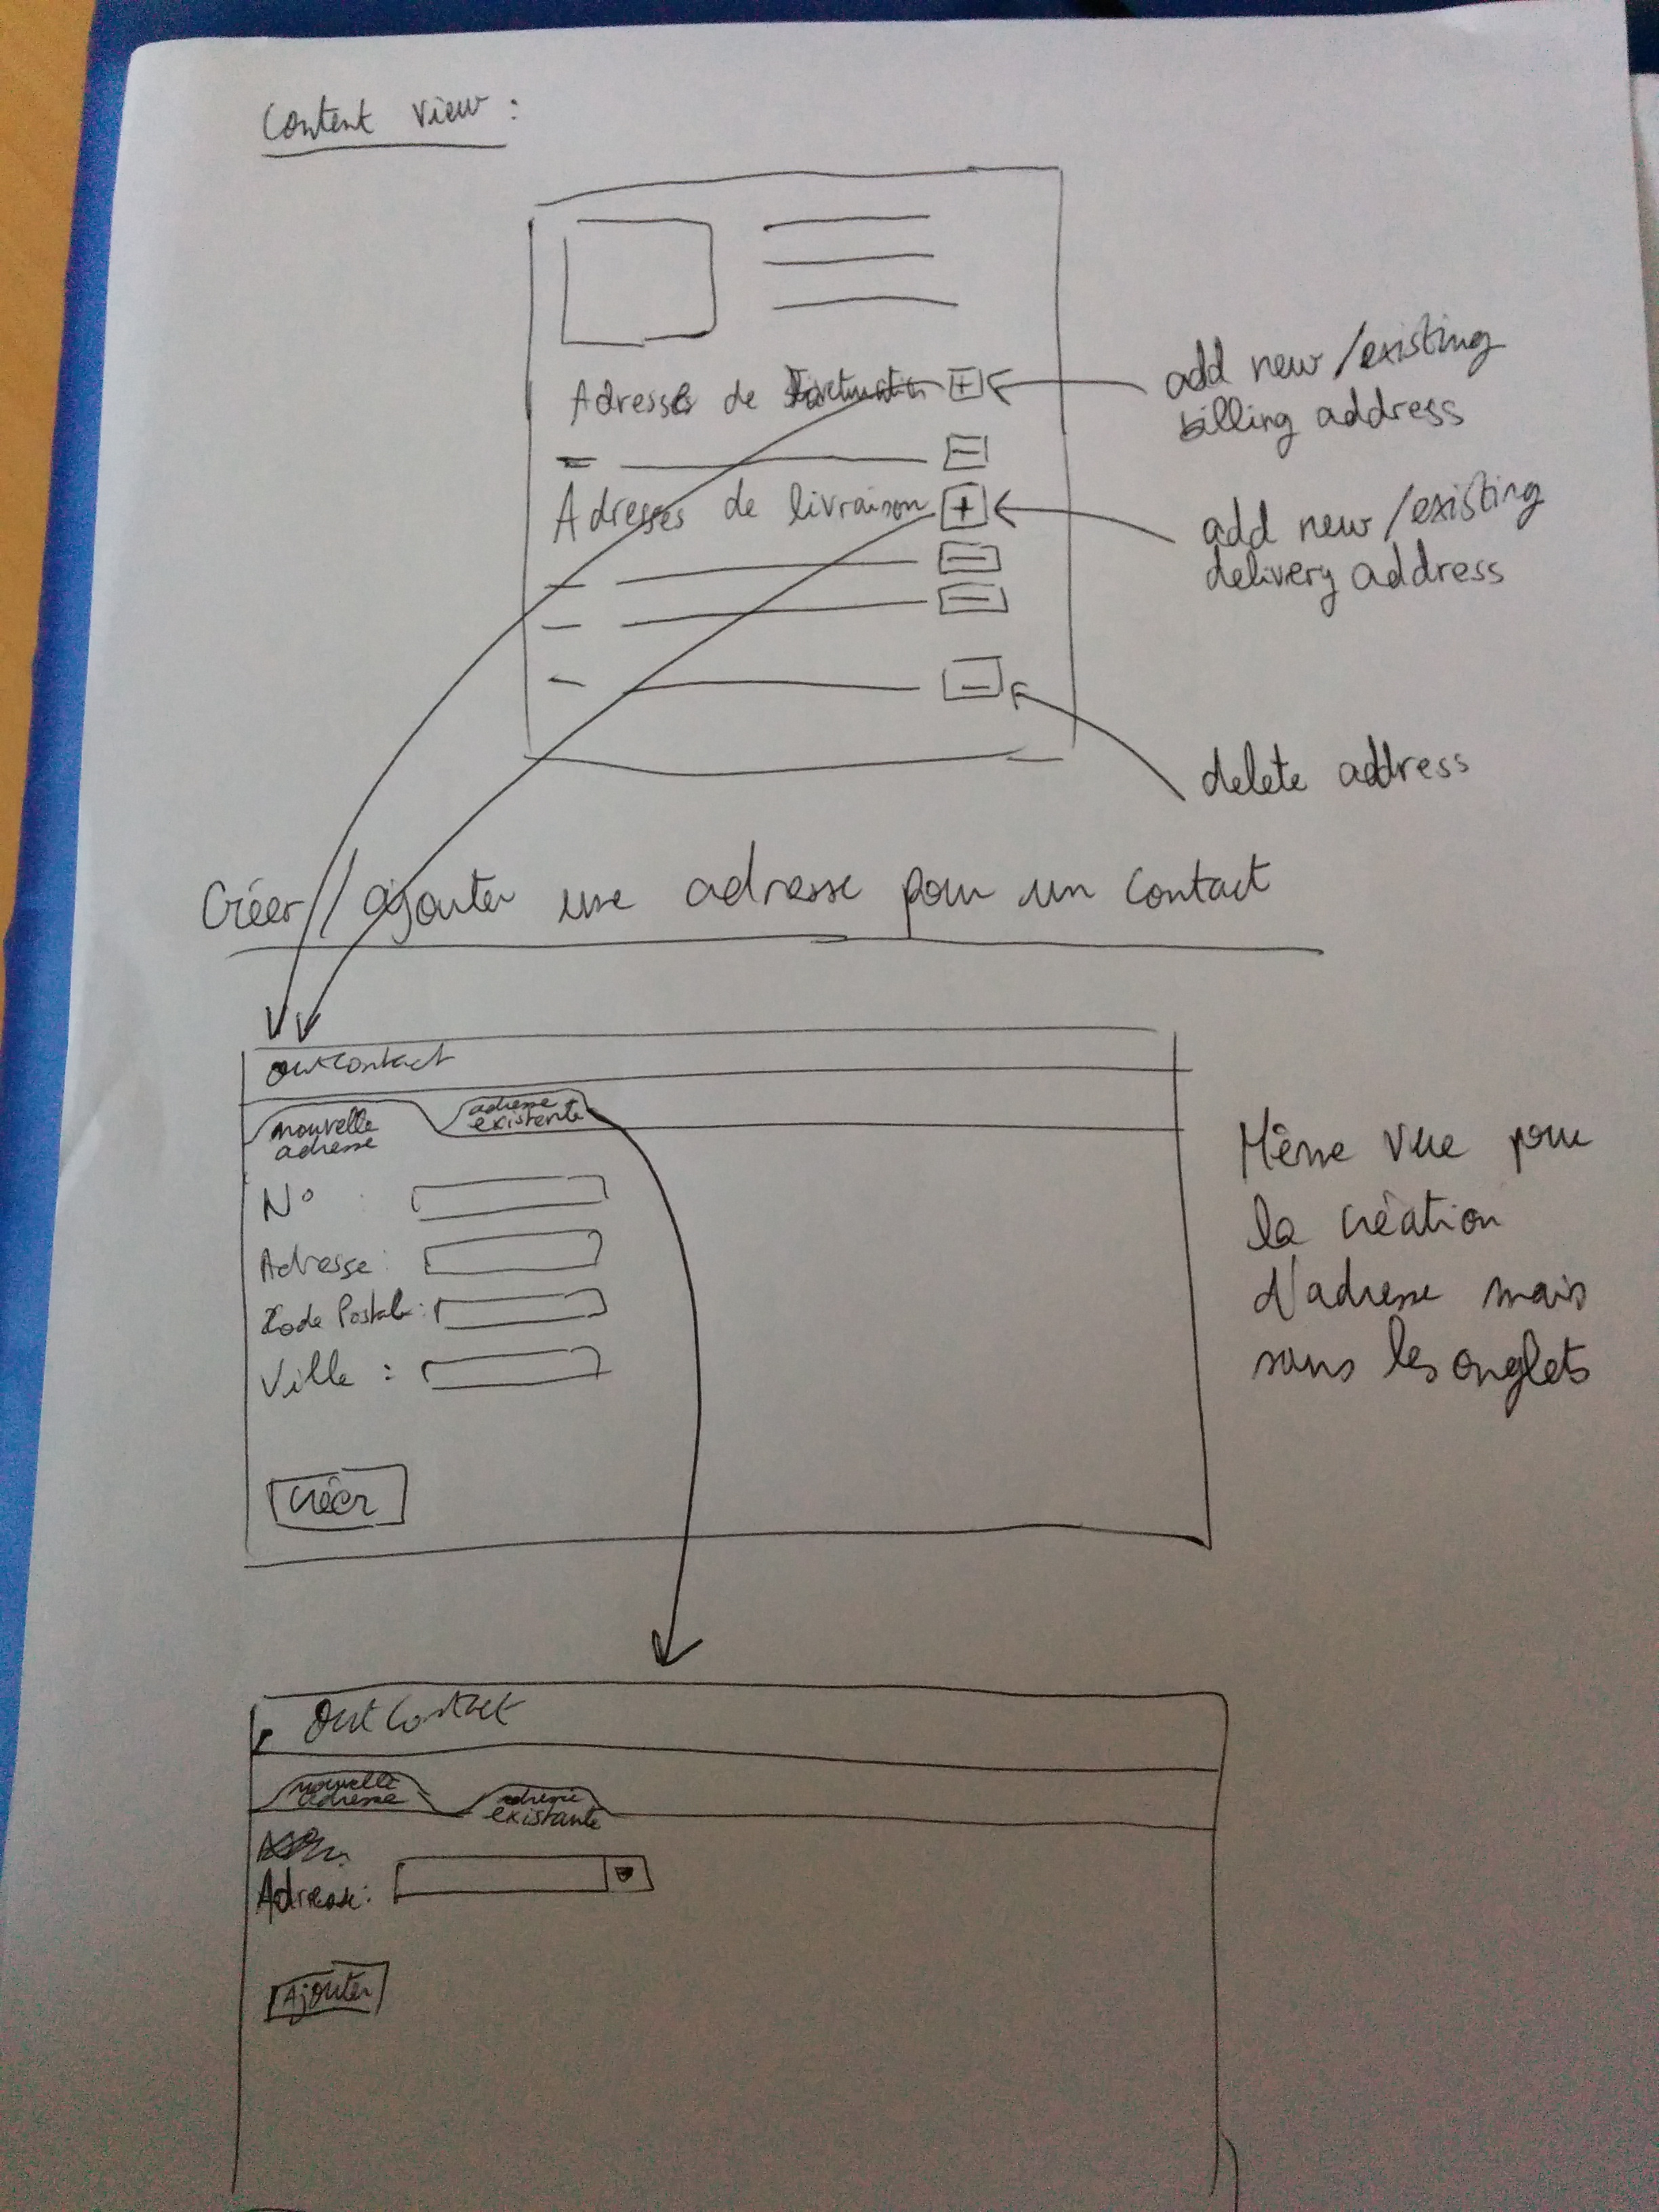 Content View :
Adresses de facturation +
add new/existing
billing address
Adresses de livraison +
add new/existing
delivery address
delete address
Créer // ajouter une adresse pour un contact
OutContact
nouvelle
adresse
adresse
existante
N°
Adresse :
Code Postal :
Ville :
Créer
Même vue pour
la création
d'adresse mais
sans les onglets
OutContact
nouvelle
adresse
adresse
existante
Adresse :
Ajouter